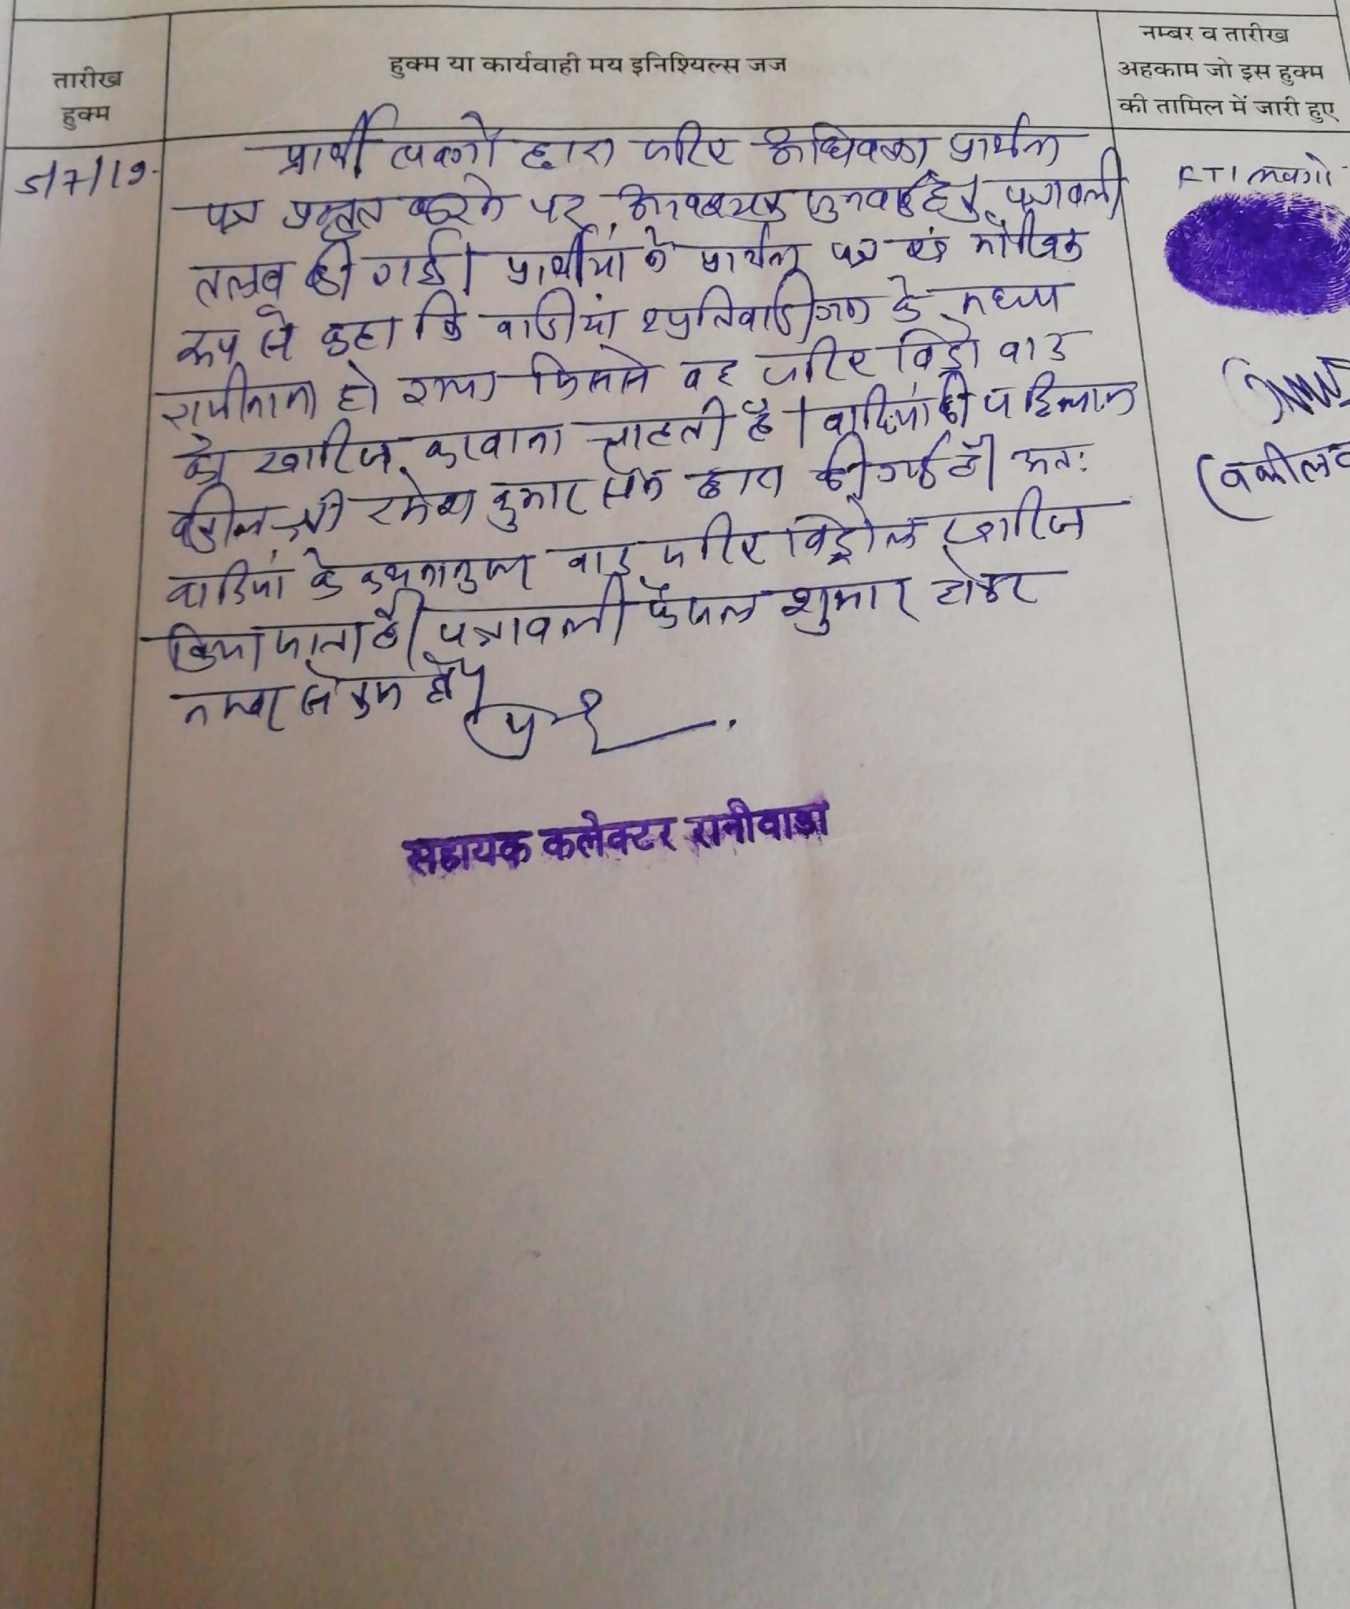 तारीख
हुक्म
हुक्म या कार्यवाही मय इनिश्यिल्स जज
नम्बर व तारीख
अहकाम जो इस हुक्म
की तामिल में जारी हुए
5/7/19
प्रार्थी द्वारा जरिए अधिवक्ता प्रार्थना
पत्र प्रस्तुत करने पर आवश्यक सुनवाई हेतु पत्रावली
तलब की गई। प्रार्थीयां के प्रार्थना पत्र एवं मौखिक
रूप से कहा कि वादीयां व प्रतिवादीगण के मध्य
राजीनामा हो गया जिससे वह जरिए विड्रो वाद
को खारिज करवाना चाहती है। वादियां की पहिचान
वकील श्री रमेश कुमार द्वारा की गई है। अतः
वादियां के कथनानुसार वाद जरिए विड्रोल खारिज
किया जाता है। पत्रावली फैसल शुमार होकर
नम्बर से कम हो।
सहायक कलेक्टर रानीवाडा
RTI
(वकील